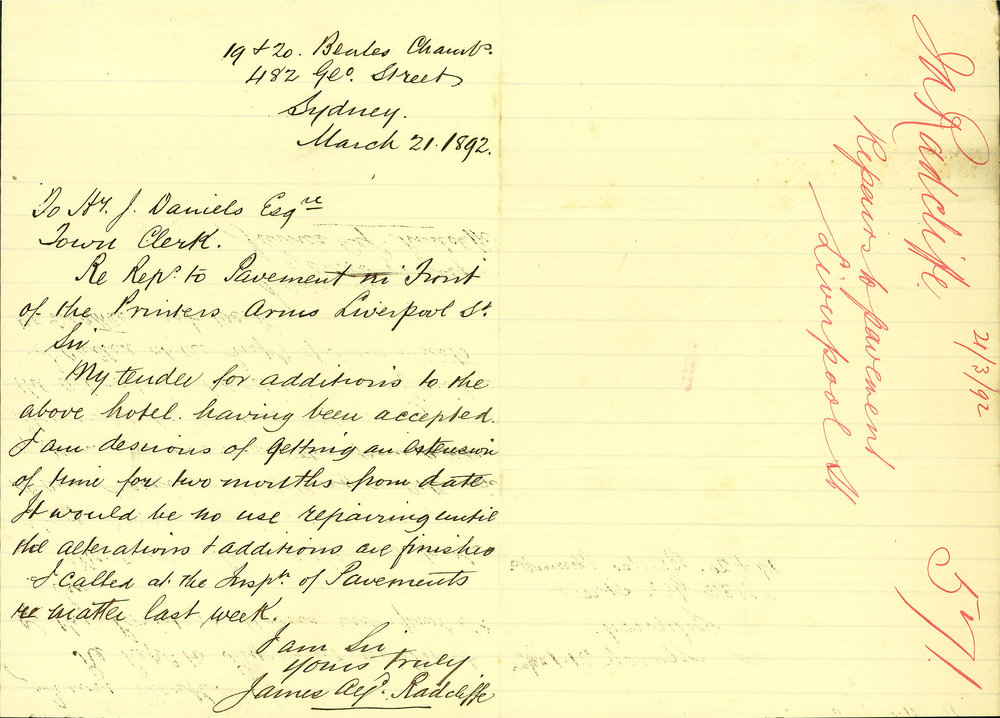 19 & 20. Beales Chambs.
482 Geo. Street
Sydney.
March 21. 1892.
To Hy. J. Daniels Esqre
Town Clerk.
Re Reps. to Pavement in Front
of the Printers Arms Liverpool St.
Sir
My tender for additions to the
above hotel. having been accepted.
I am desirous of getting an extension
of time for two months from date
It would be no use repairing until
the alterations & additions are finished
I called at the Inspr. of Pavements
re matter last week.
I am Sir
Yours truly
James Alexr. Radcliffe
Radcliffe
Repairs to pavement
Liverpool St
21/3/92
571